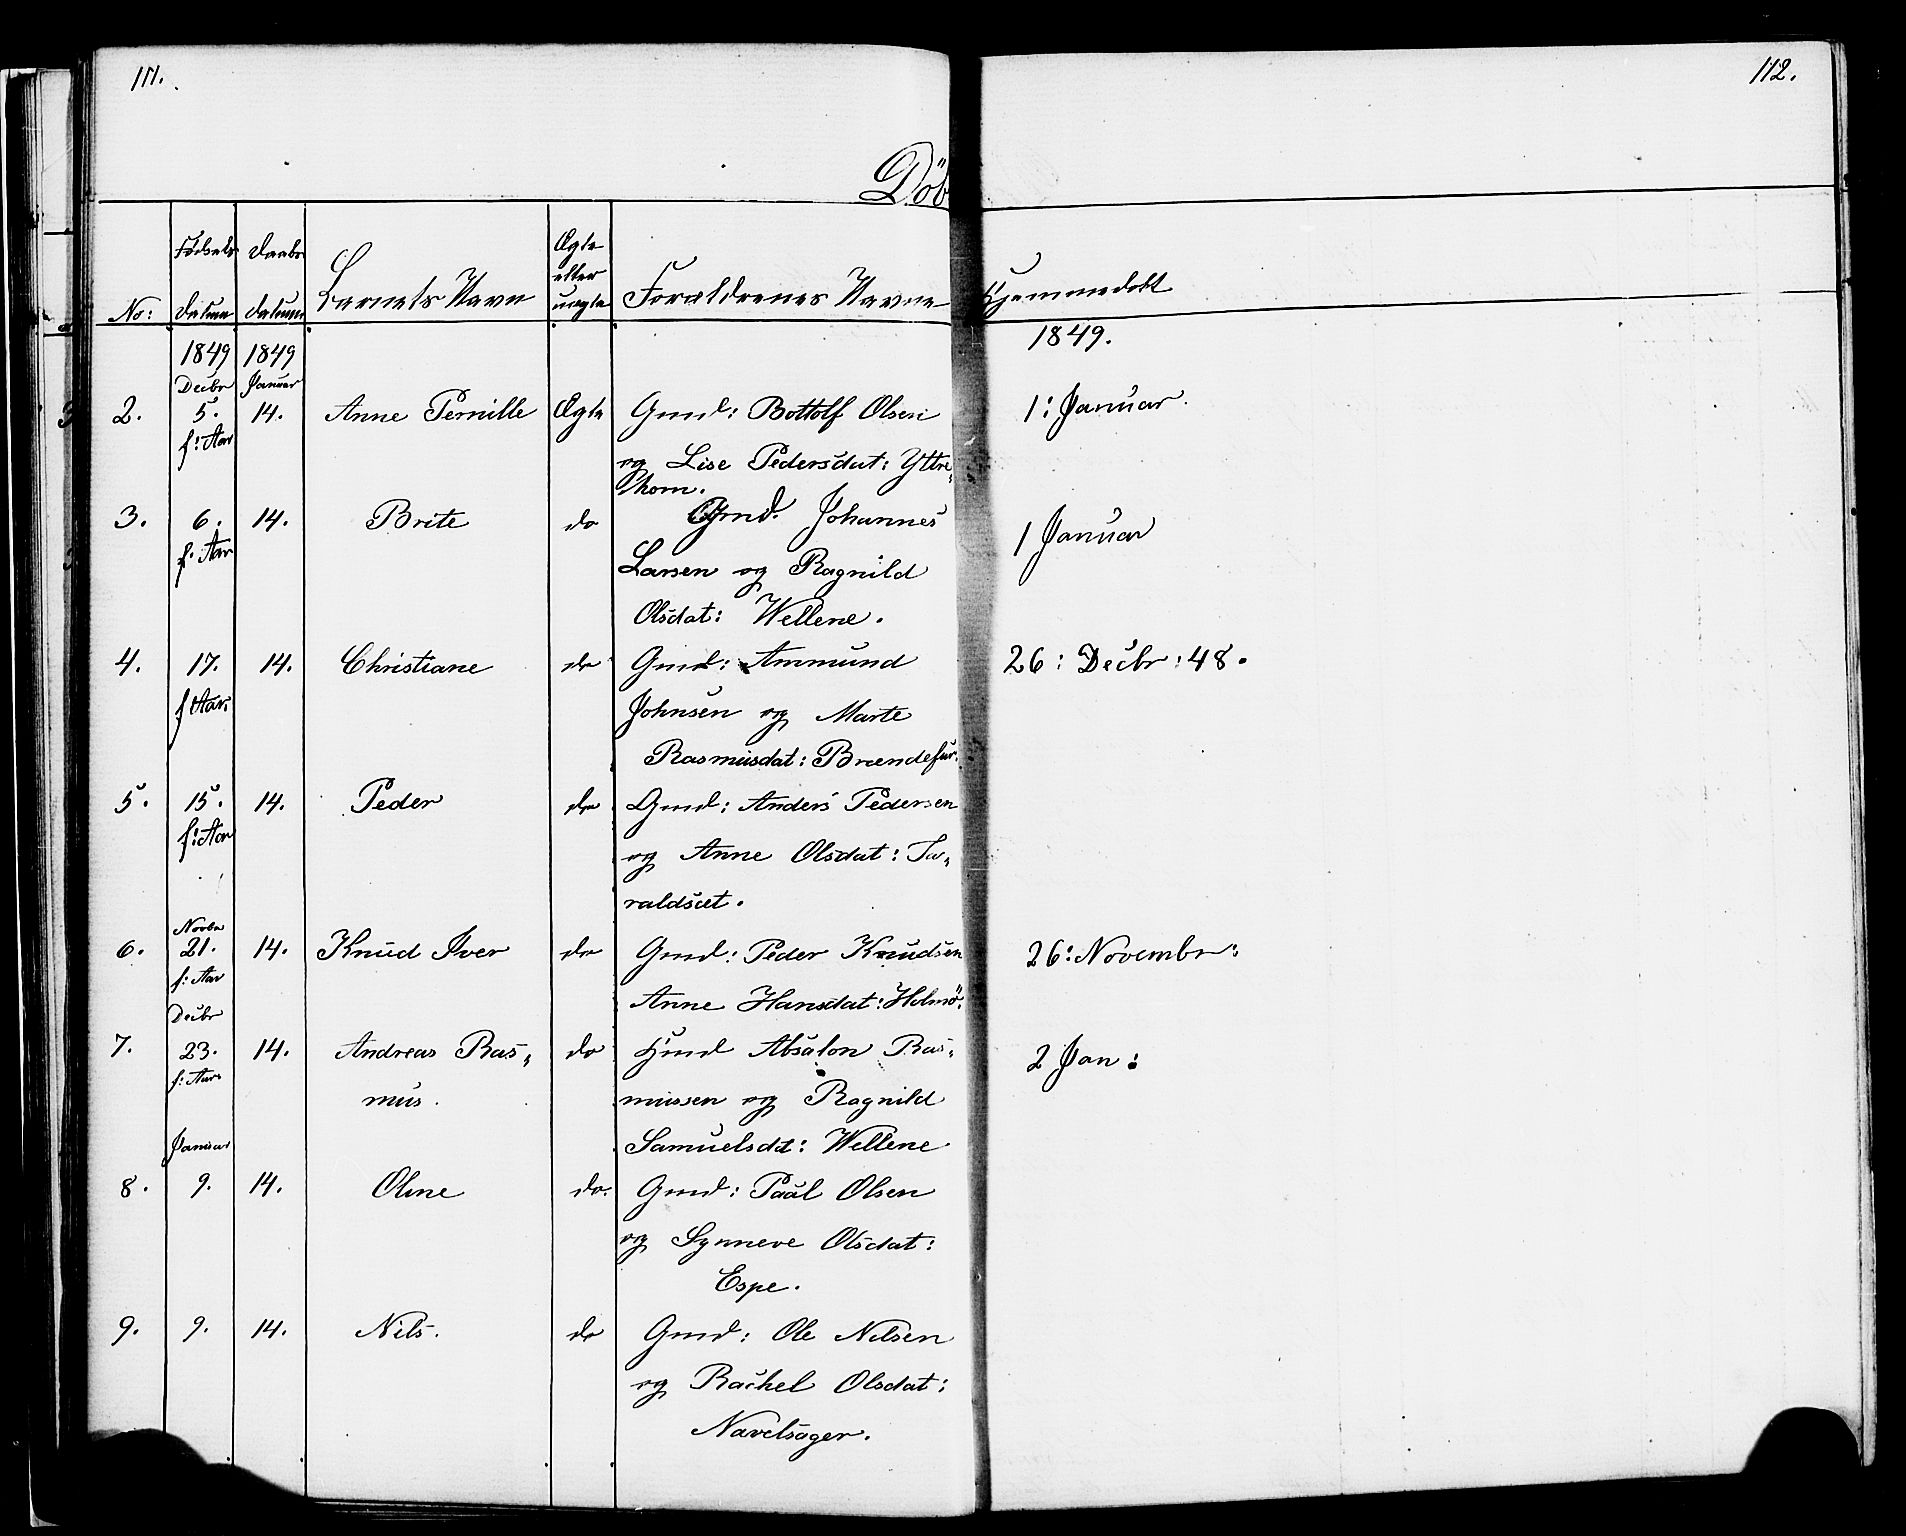 111.
112.
Döb
No:
Fødsels
Datum
Daabs
datum
Barnets Navn
Ægte
eller
uægte
Forældrenes Navne
Hjemmedøbt
1849
1849
1849.
Decbr
Januar
2.
5.
14.
Anne Pernille
Ægte
Gmd: Bottolf Olsen
1: Januar.
f: Aar
og Lise Pedersdat: Yttre„
hom.
3.
6.
14.
Brite
do
Gmd. Johannes
1 Januar
f: Aar
Larsen og Ragnild
Olsdat: Wellene.
4.
17.
14.
Christiane
do
Gmd: Ammund
26: Decbr: 48.
f Aar:
Johnsen og Marte
Rasmusdat: Brændefur.
5.
15.
14.
Peder
do
Gmd: Anders Pedersen
f: Aar
og Anne Olsdat: Ta„
raldsæt.
Novbr
6.
21.
14.
Knud Iver
do
Gmd: Peder Knudsen
26: Novembr:
f: Aar
Anne Hansdat: Holmö.
Decbr
7.
23.
14.
Andreas Ras„
do
Hmd Absalon Ras„
2 Jan:
f: Aar
mus.
mussen og Ragnild
Samuelsdt: Wellene
Januar
8.
9.
14.
Oline
do.
Gmd: Paul Olsen
og Synneve Olsdat:
Espe.
9.
9.
14.
Nils.
do
Gmd: Ole Nilsen
og Rachel Olsdat:
Navelsager.